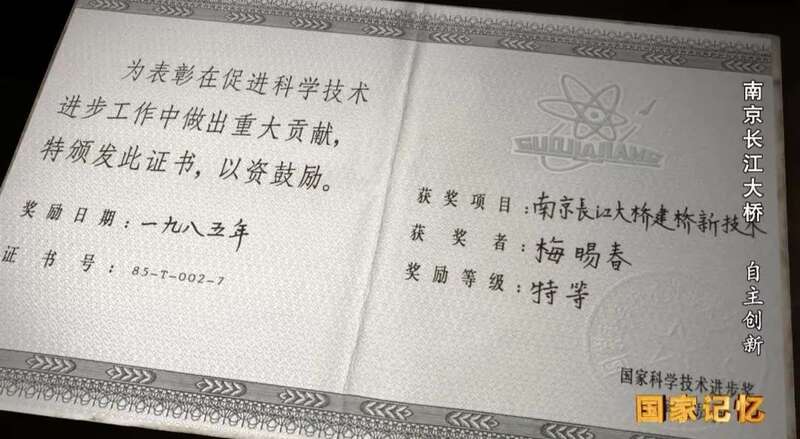 为表彰在促进科学技术
进步工作中做出重大贡献，
特颁发此证书，以资鼓励。
奖励日期：一九八五年
证书号：85-T-002-7
GUOJIAJIANG
获奖项目：南京長江大桥建桥新技术
获奖者：梅暘春
奖励等级：特等
国家科学技术进步奖
南京长江大桥 自主创新
国家记忆